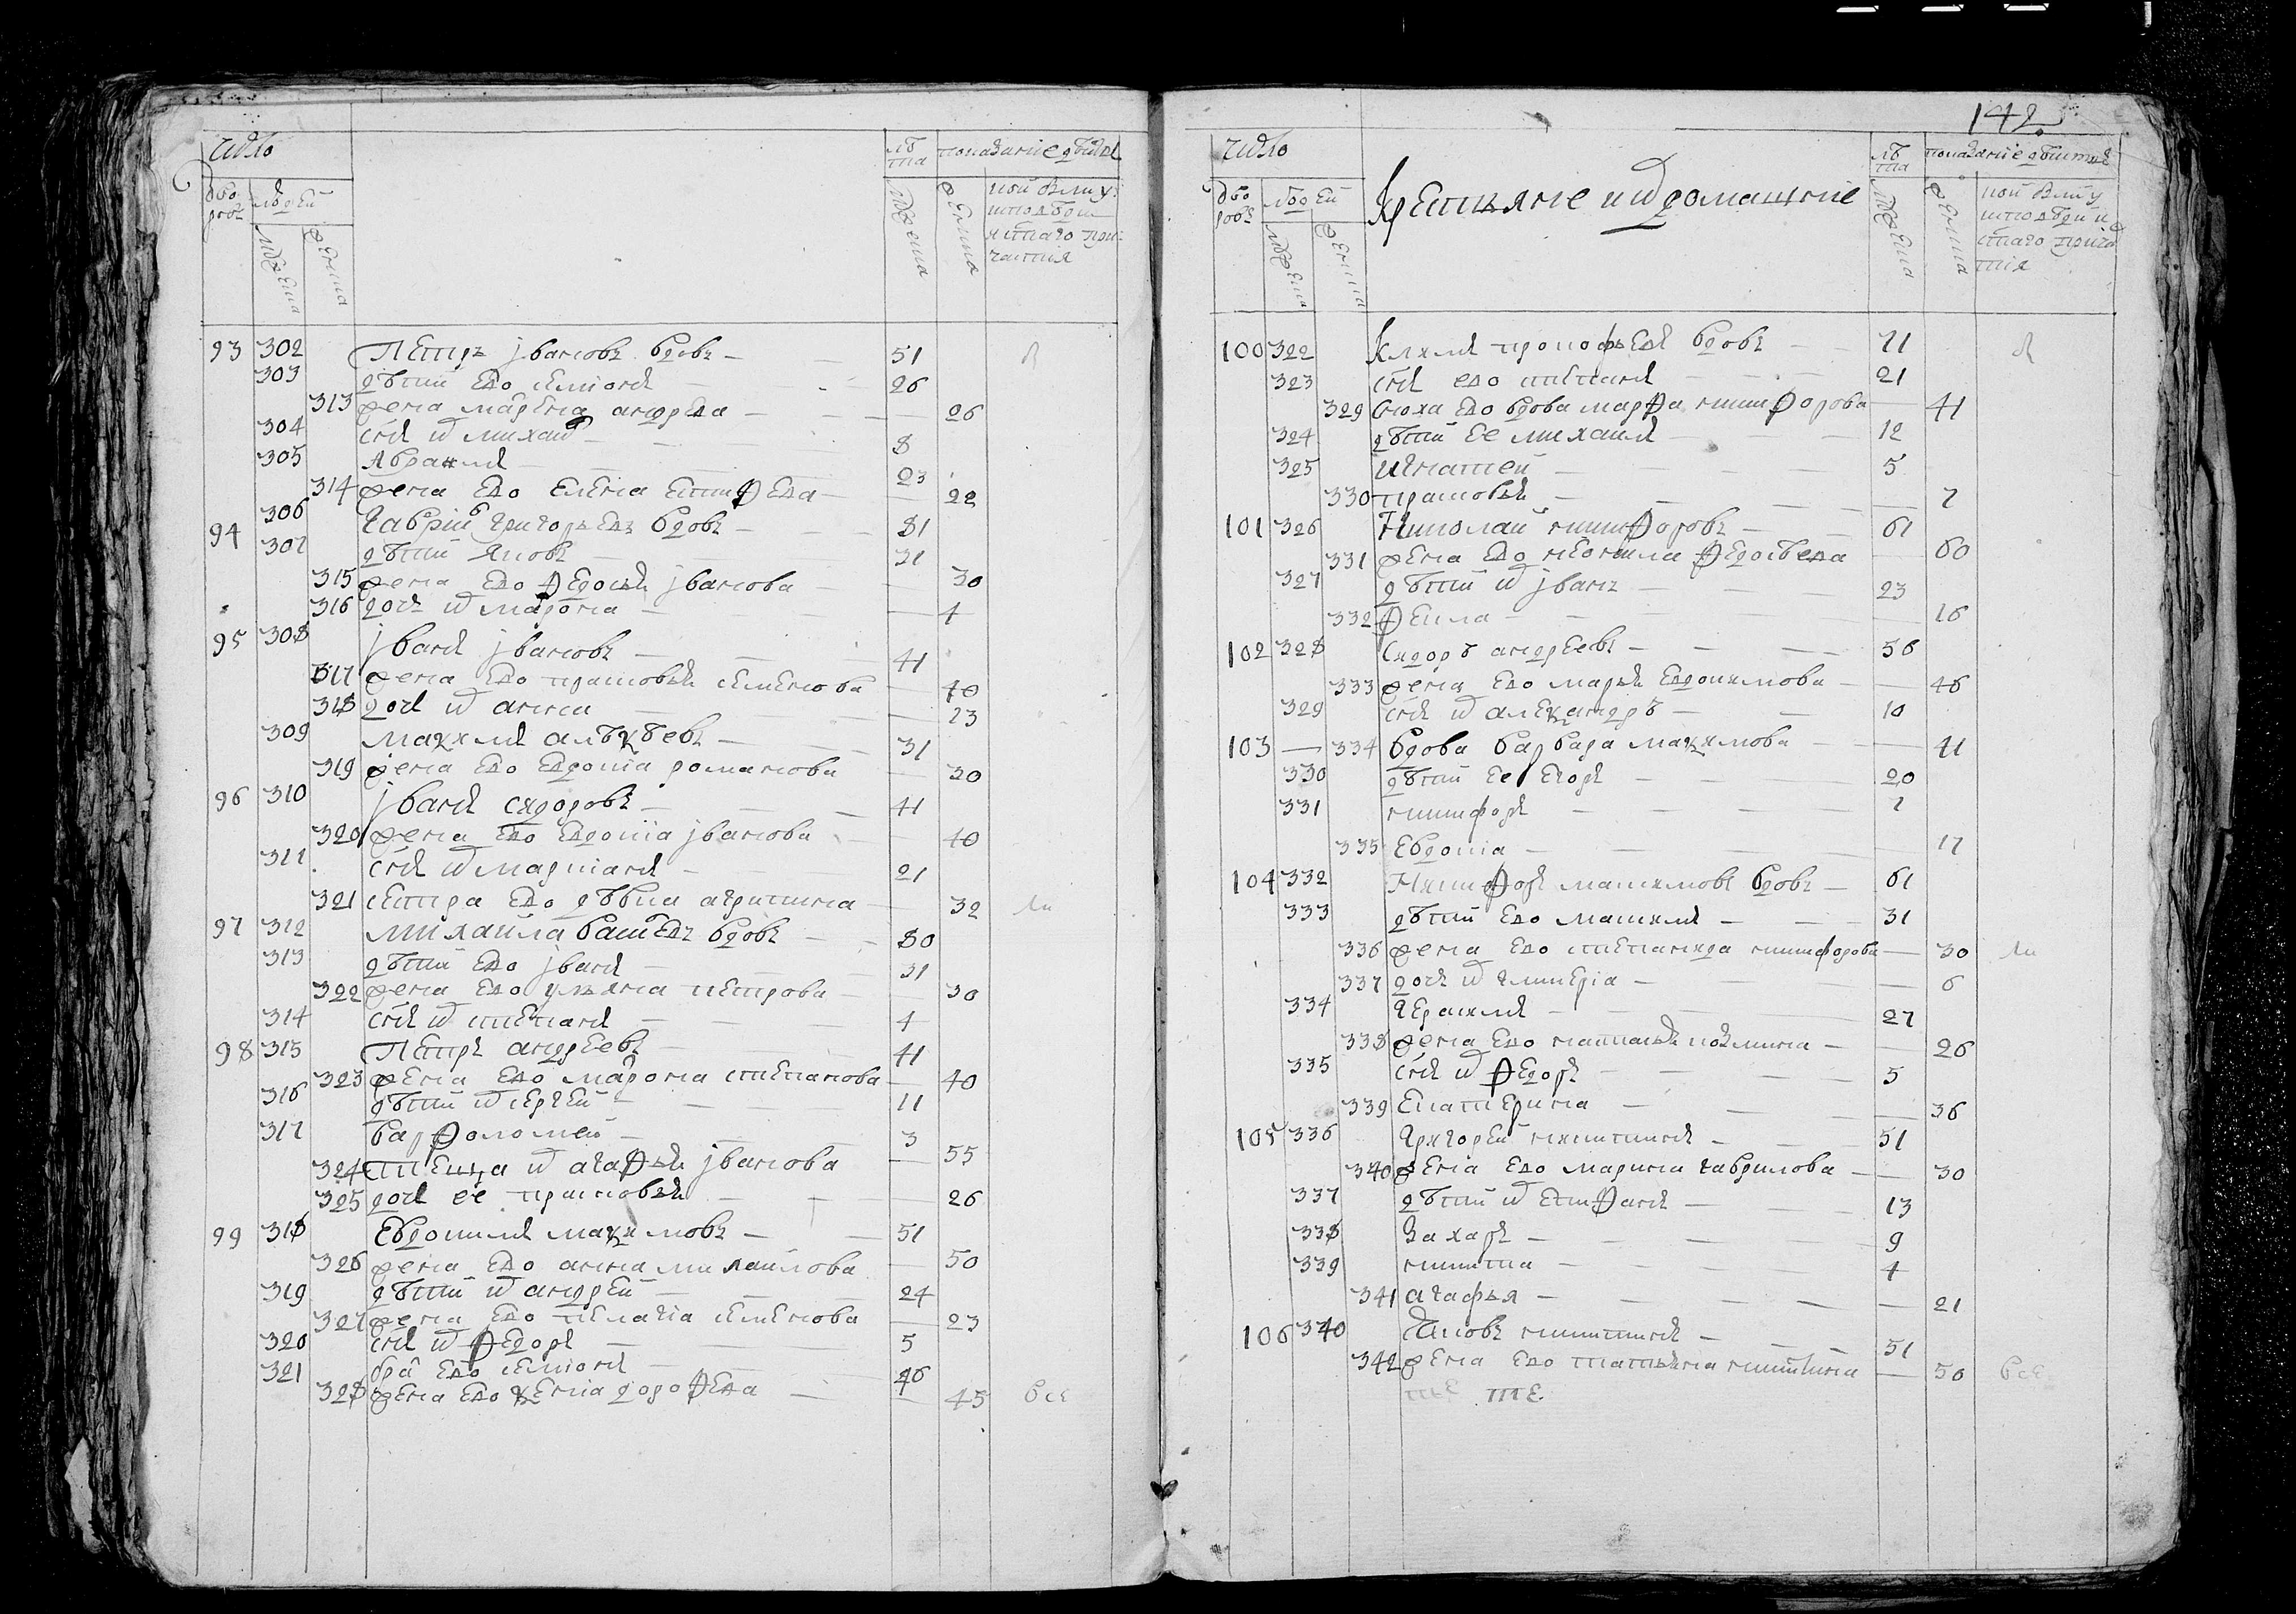 число
лѣта показание дѣйст
дворовъ людей
мужеска женска
мужеска женска кой был у исповѣди и святаго причастия
93 302 Петръ Ивановъ вдовъ 51
303 дѣти ево Семионъ 26
313 жена Марена Андреева 26
304 снъ их Михаил 8
305 Авраамъ 23
314 жена ево Елена Епифева 22
306
94 Гаврил Григорьевъ вдовъ 81
307 дѣти Яковъ 31
315 жена ево Федосья Иванова 30
316 дочъ их Марфона 4
95 308 Иванъ Ивановъ 41
317 жена ево Прасковья Семенова 40
318 дочъ их Анна 23
309 Максимъ Алѣксѣевъ 31
319 жена ево Евдокия Романова 30
96 310 Иванъ Сидоровъ 41
320 жена ево Евдокиа Иванова 40
311 снъ их Мартианъ 21
321 сестра ево дѣвка Агрипина 32
97 312 Михайла Васильевъ вдовъ 80
313 дѣти ево Иванъ 31
322 жена ево Ульяна Петрова 30
314 снъ их Степанъ 4
98 315 Петръ Андреевъ 41
323 жена ево Марфона Степанова 40
316 дѣти их Сергей 11
317 Варфоломей 3
324 теща их Агафья Иванова 55
325 дочъ ее Прасковья 26
99 318 Евдокимъ Максимовъ 51
326 жена ево Анна Михайлова 50
319 дѣти их Андрей 24
327 жена ево Пелагиа Семенова 23
320 снъ их Федоръ 5
321 братъ ево Семионъ 46
328 жена ево Ксения Дорофеева 45 все
142
число Крестьяне и их домашние лѣта показание дѣйств
дворовъ людей
мужеска женска
мужеска женска кой был у исповѣди и святаго причастия
100 322 Климъ Прокофьевъ вдовъ 71
323 снъ ево Степанъ 21
329 сноха ево вдова Марфа Никифорова 41
324 дѣти ее Михаилъ 12
325 Игнатей 5
330 Прасковья 7
101 326 Николай Никифоровъ 61
331 жена ево Неонила Федосѣева 60
327 дѣти их Иванъ 23
332 Фекла 16
102 328 Сидоръ Андреевъ 56
333 жена ево Марья Евдокимова 46
329 снъ их Александръ 10
103 334 вдова Варвара Максимова 41
330 дѣти ее Егоръ 20
331 Никифоръ 7
335 Евдокиа 17
104 332 Никифоръ Максимовъ вдовъ 61
333 дѣти ево Максимъ 31
336 жена ево Степанида Никифорова 30
337 дочъ их Гликериа 6
334 Герасимъ 27
338 жена ево Наталья Козмина 26
335 снъ их Федоръ 5
339 Екатерина 36
105 336 Григорей Никитинъ 51
340 жена ево Марина Гаврилова 30
337 дѣти их Епифанъ 13
338 Захаръ 9
339 Никита 4
341 Агафья 21
106 340 Яковъ Никитинъ 51
342 жена ево Татьяна Никитина 50 все
те те